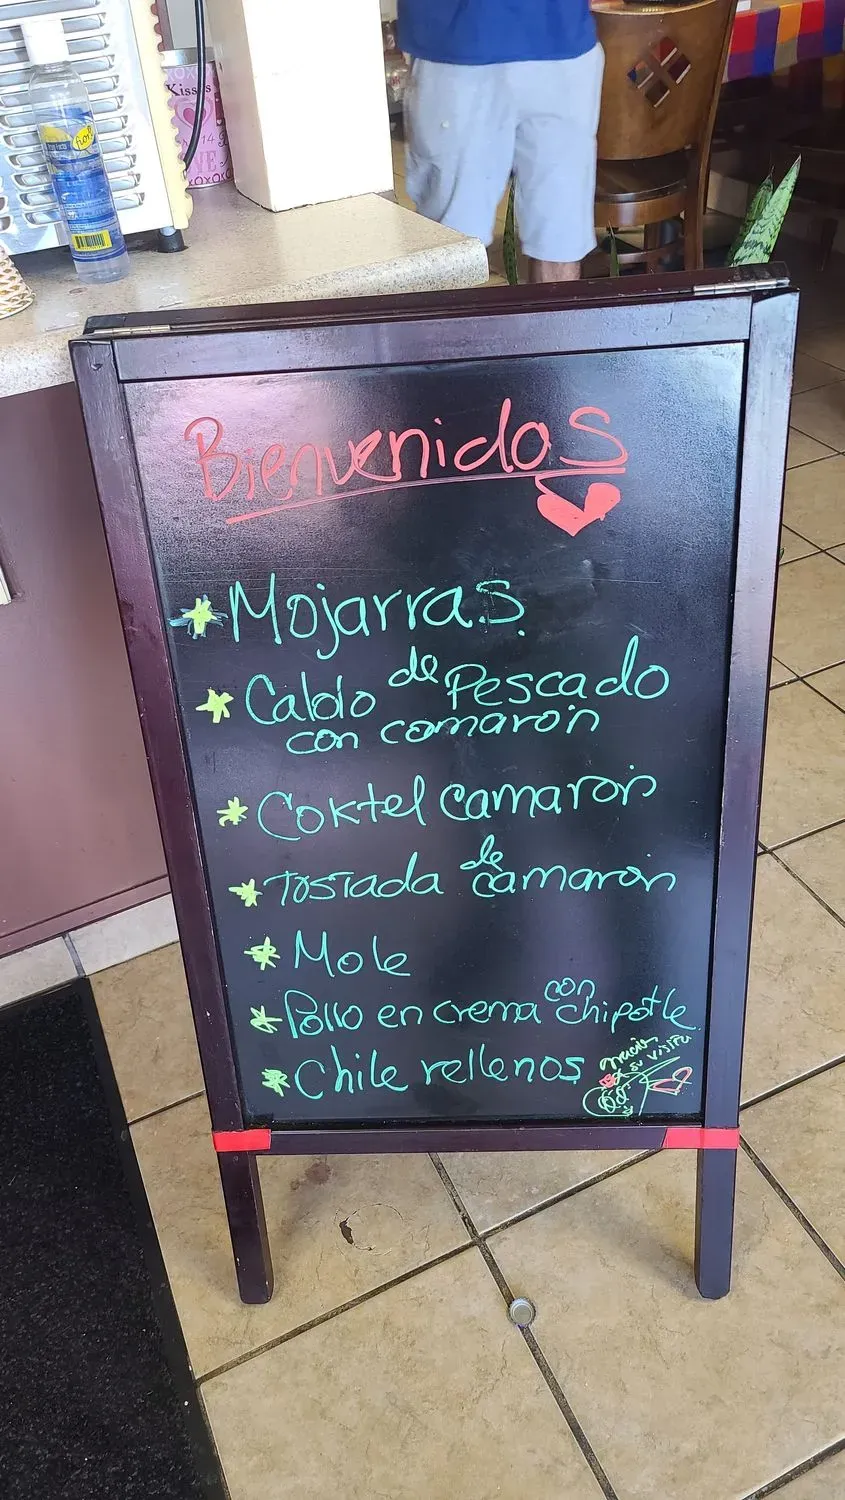 Kiss
Bienvenidos
Mojarras.
Caldo de Pescado
con camarón
Coktel camarón
Tostada de camarón
Mole
Pollo en crema con chipotle
Chile rellenos
gracias
su visita